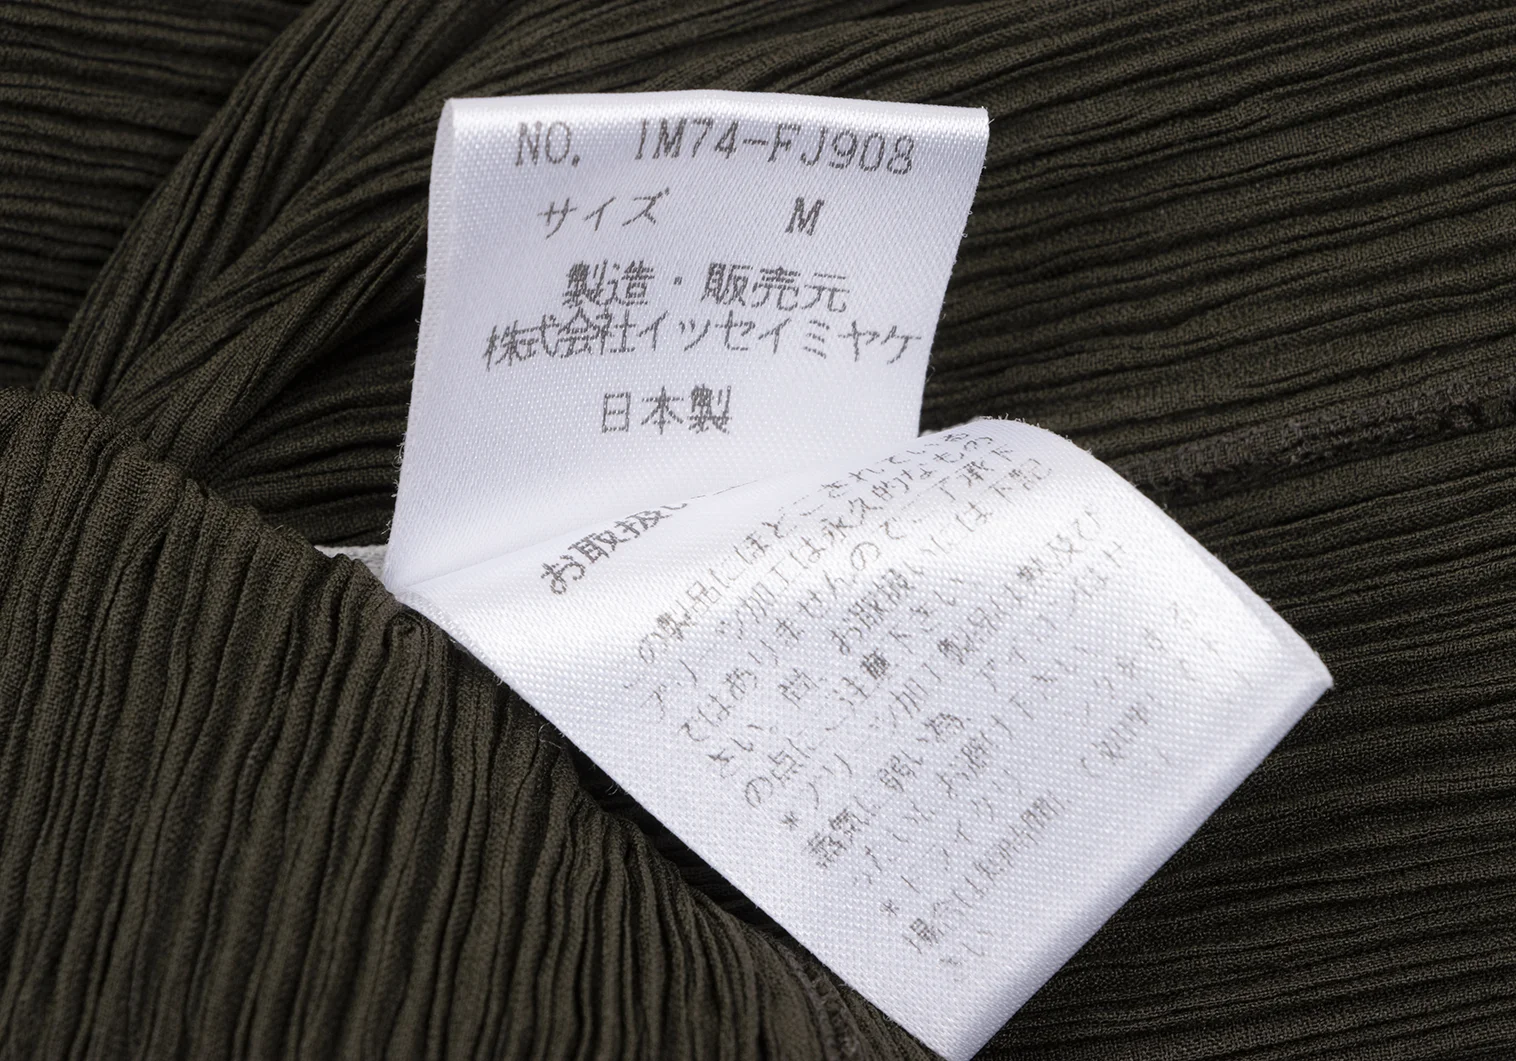 NO. IM74-FJ908
サイズ M
製造・販売元
株式会社イッセイミヤケ
日本製
お取扱い
の製品にほどこされている
プリーツ加工は永久的なもの
ではありませんので、
さい。尚、お取扱いには下記
の点にご注意下さい。
*プリーツ加工製品は熱及び
蒸気に弱い為、アイロンがけ
お避け下さい
*ドライクリーニング
場合は
さい